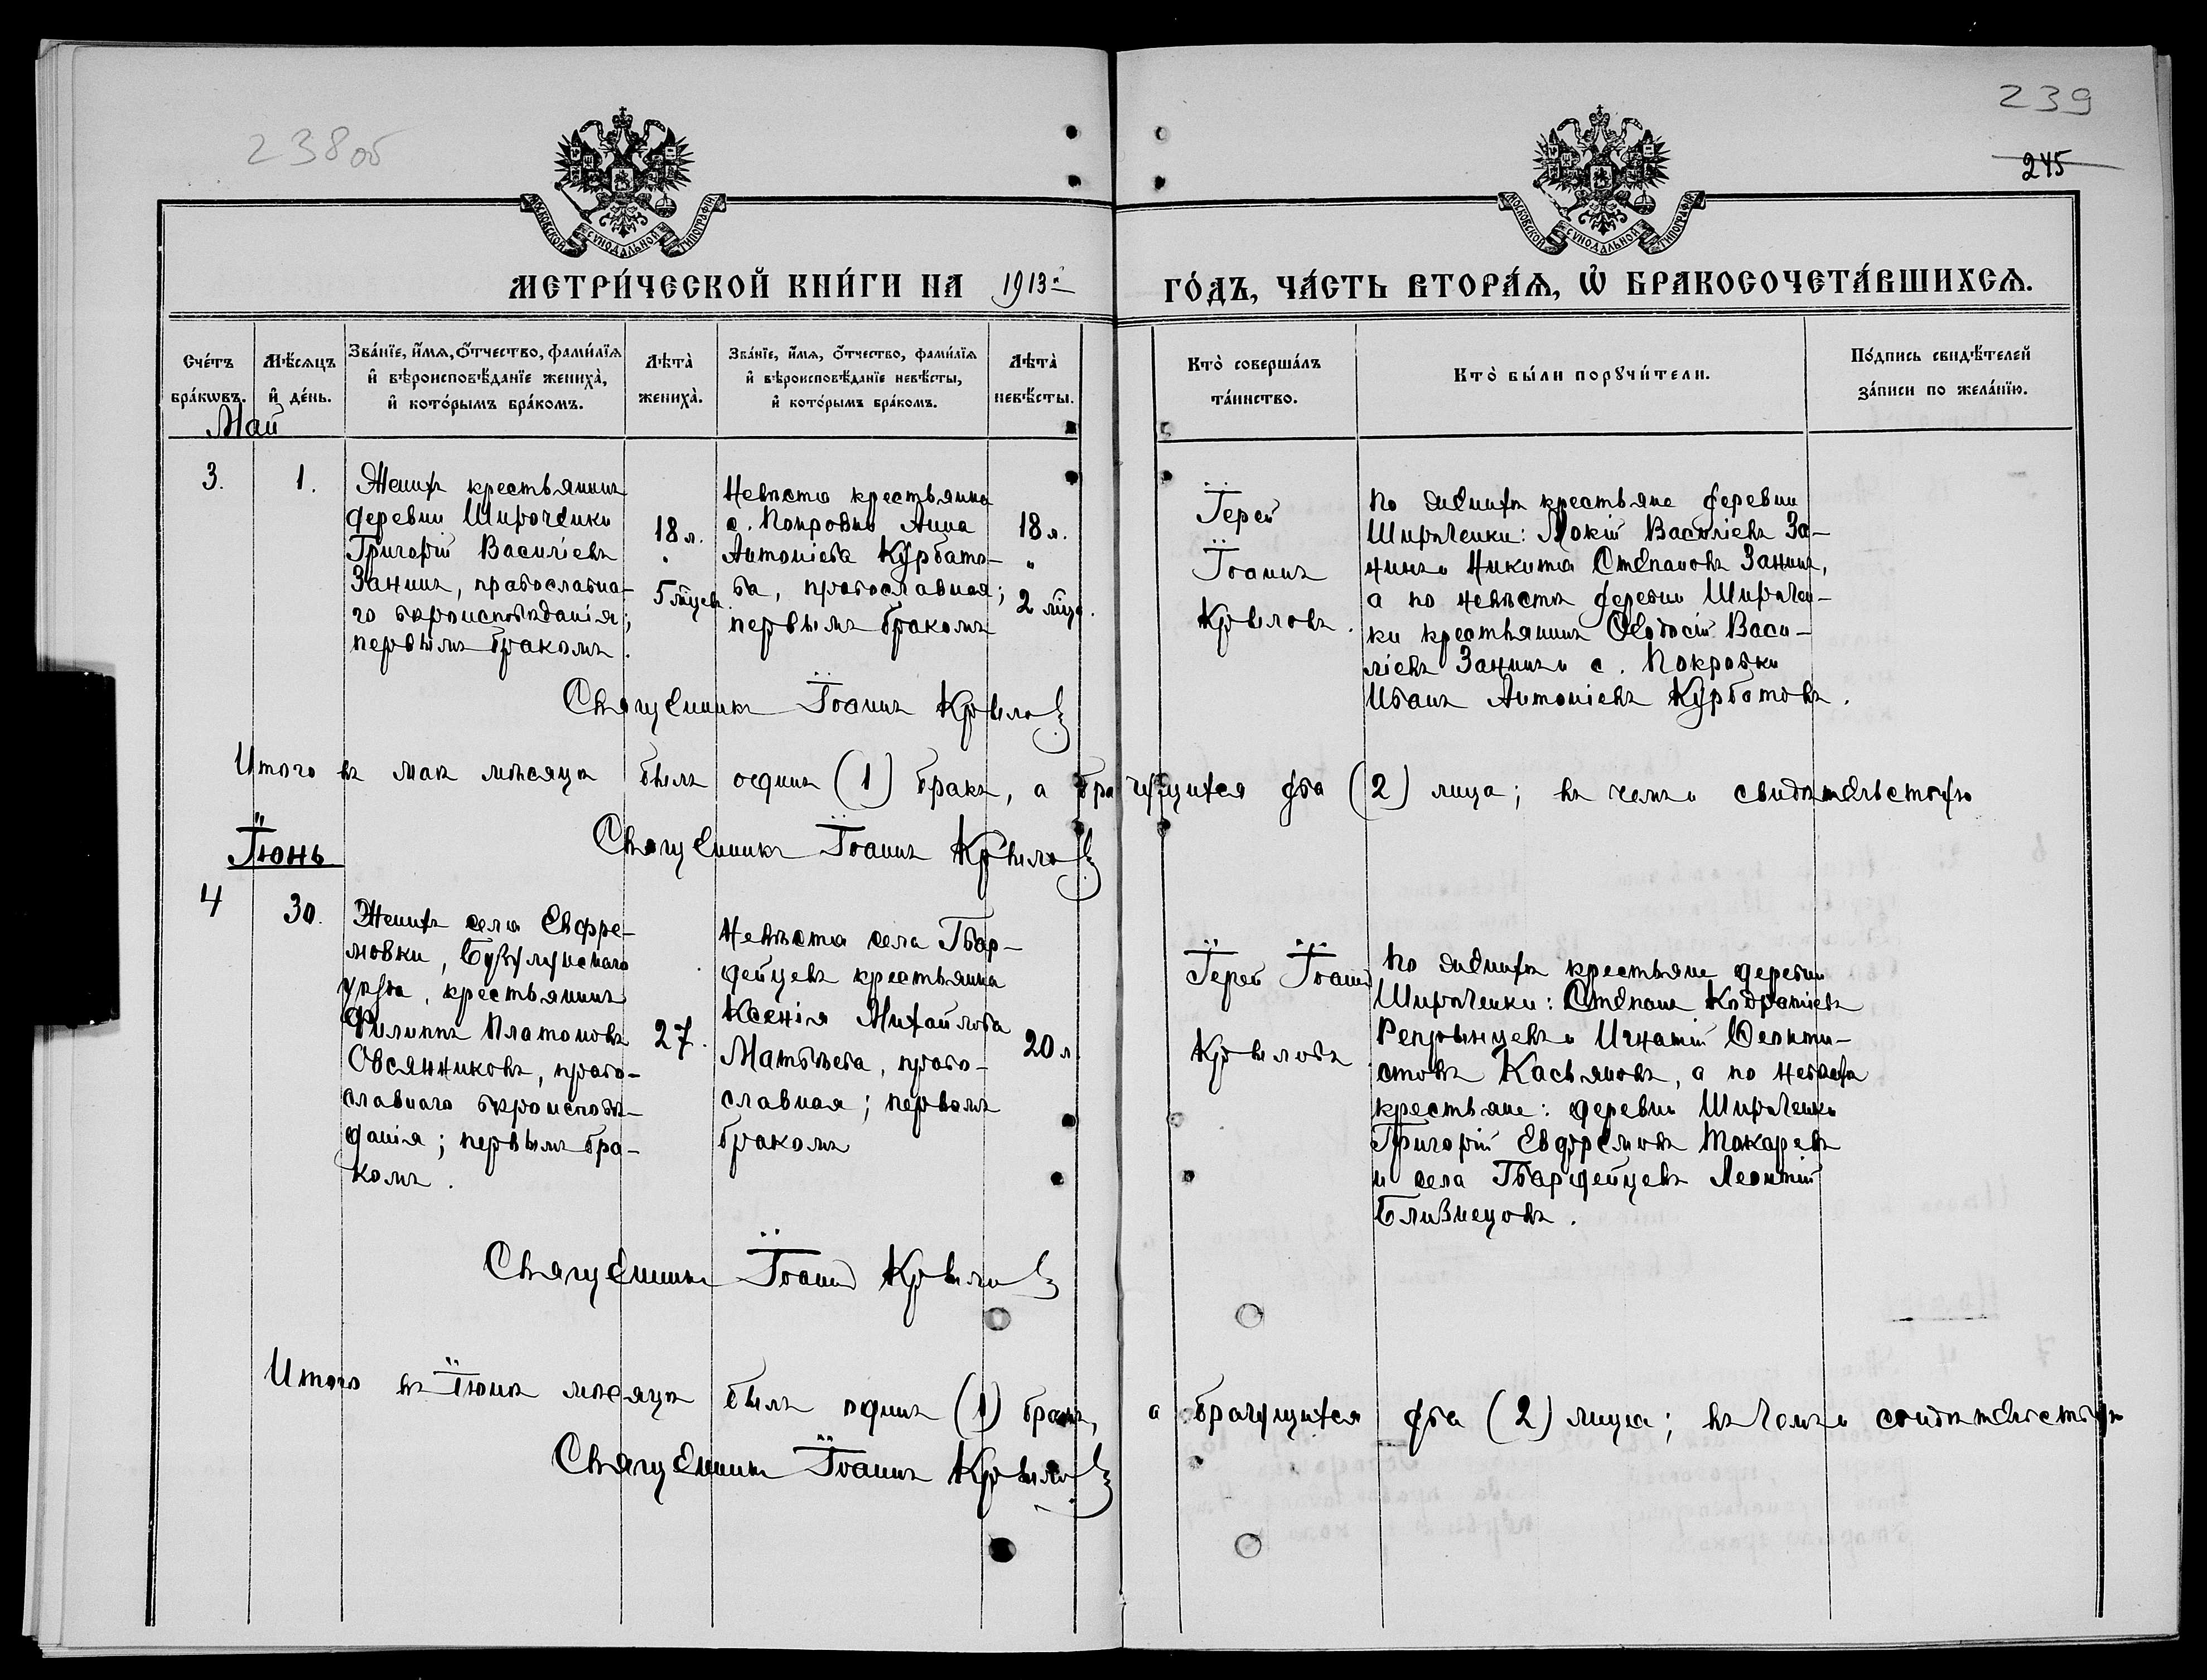 238 об
239
245
МОСКОВСКОЙ СѴНОДАЛЬНОЙ ТИПОГРАФІИ
МОСКОВСКОЙ СѴНОДАЛЬНОЙ ТИПОГРАФІИ
МЕТРИ́ЧЕСКОЙ КНИ́ГИ НА 1913й
ГО́ДЪ, ЧА́СТЬ ВТОРА́Я, Ѽ БРАКОСОЧЕТА́ВШИХСЯ.
Сче́тъ бра́кѡвъ.
Мѣ́сяцъ и҆ де́нь.
Зва́нїе, и҆́мя, о҆́тчество, фами́лїя и҆ вѣроисповѣ́данїе жениха̀, и҆ кото́рымъ бра́комъ.
Лѣ́та̀ жениха̀.
Зва́нїе, и҆́мя, о҆́тчество, фами́лїя и҆ вѣроисповѣ́данїе невѣ́сты, и҆ кото́рымъ бра́комъ.
Лѣ́та̀ невѣ́сты.
Кто̀ соверша́лъ та́инство.
Кто̀ бы́ли порꙋчи́тели.
По́дпись свидѣ́телей за́писи по жела́нїю.
Май
3.
1.
Женихъ крестьянинъ
деревни Широченки
Григорій Василіевъ
Занинъ, православна-
го вѣроисповѣданія;
первымъ бракомъ.
18 л.
5 мцев.
Невѣста крестьянка
с. Покровки Анна
Антоніева Курбато-
ва, православная;
первымъ бракомъ
18 л.
2 мца.
Іерей
Іоаннъ
Крыловъ.
По женихѣ крестьяне деревни
Широченки: Мокій Василіевъ За-
нинъ и Никита Степановъ Занинъ,
а по невѣстѣ деревни Широчен-
ки крестьянинъ Ѳеодосій Васи-
ліевъ Занинъ и с. Покровки
Иванъ Антоніевъ Курбатовъ.
Священникъ Іоаннъ Крыловъ
Итого въ маѣ мѣсяцѣ былъ одинъ (1) бракъ, а брачущихся два (2) лица; въ чемъ и свидѣтельствую
Священникъ Іоаннъ Крыловъ
Іюнь
4
30.
Женихъ села Евфре-
мовки, Бузулукскаго
уѣзда, крестьянинъ
Филиппъ Платоновъ
Овсянниковъ, право-
славнаго вѣроисповѣ-
данія; первымъ бра-
комъ.
27.
Невѣста села Гвар-
дейцевъ крестьянка
Ксенія Михайлова
Матвѣева, право-
славная; первымъ
бракомъ
20 л.
Іерей Іоаннъ
Крыловъ
По женихѣ крестьяне деревни
Широченки: Степанъ Кодратіевъ
Репрынцевъ и Игнатій Ѳеокти-
стовъ Касьяновъ, а по невѣстѣ
крестьяне: деревни Широченки
Григорій Евфремовъ Токаревъ
и села Гвардейцевъ Леонтій
Близнецовъ.
Священникъ Іоаннъ Крыловъ
Итого въ Іюнѣ мѣсяцѣ былъ одинъ (1) бракъ, а брачущихся два (2) лица; въ чемъ и свидѣтельствую
Священникъ Іоаннъ Крыловъ